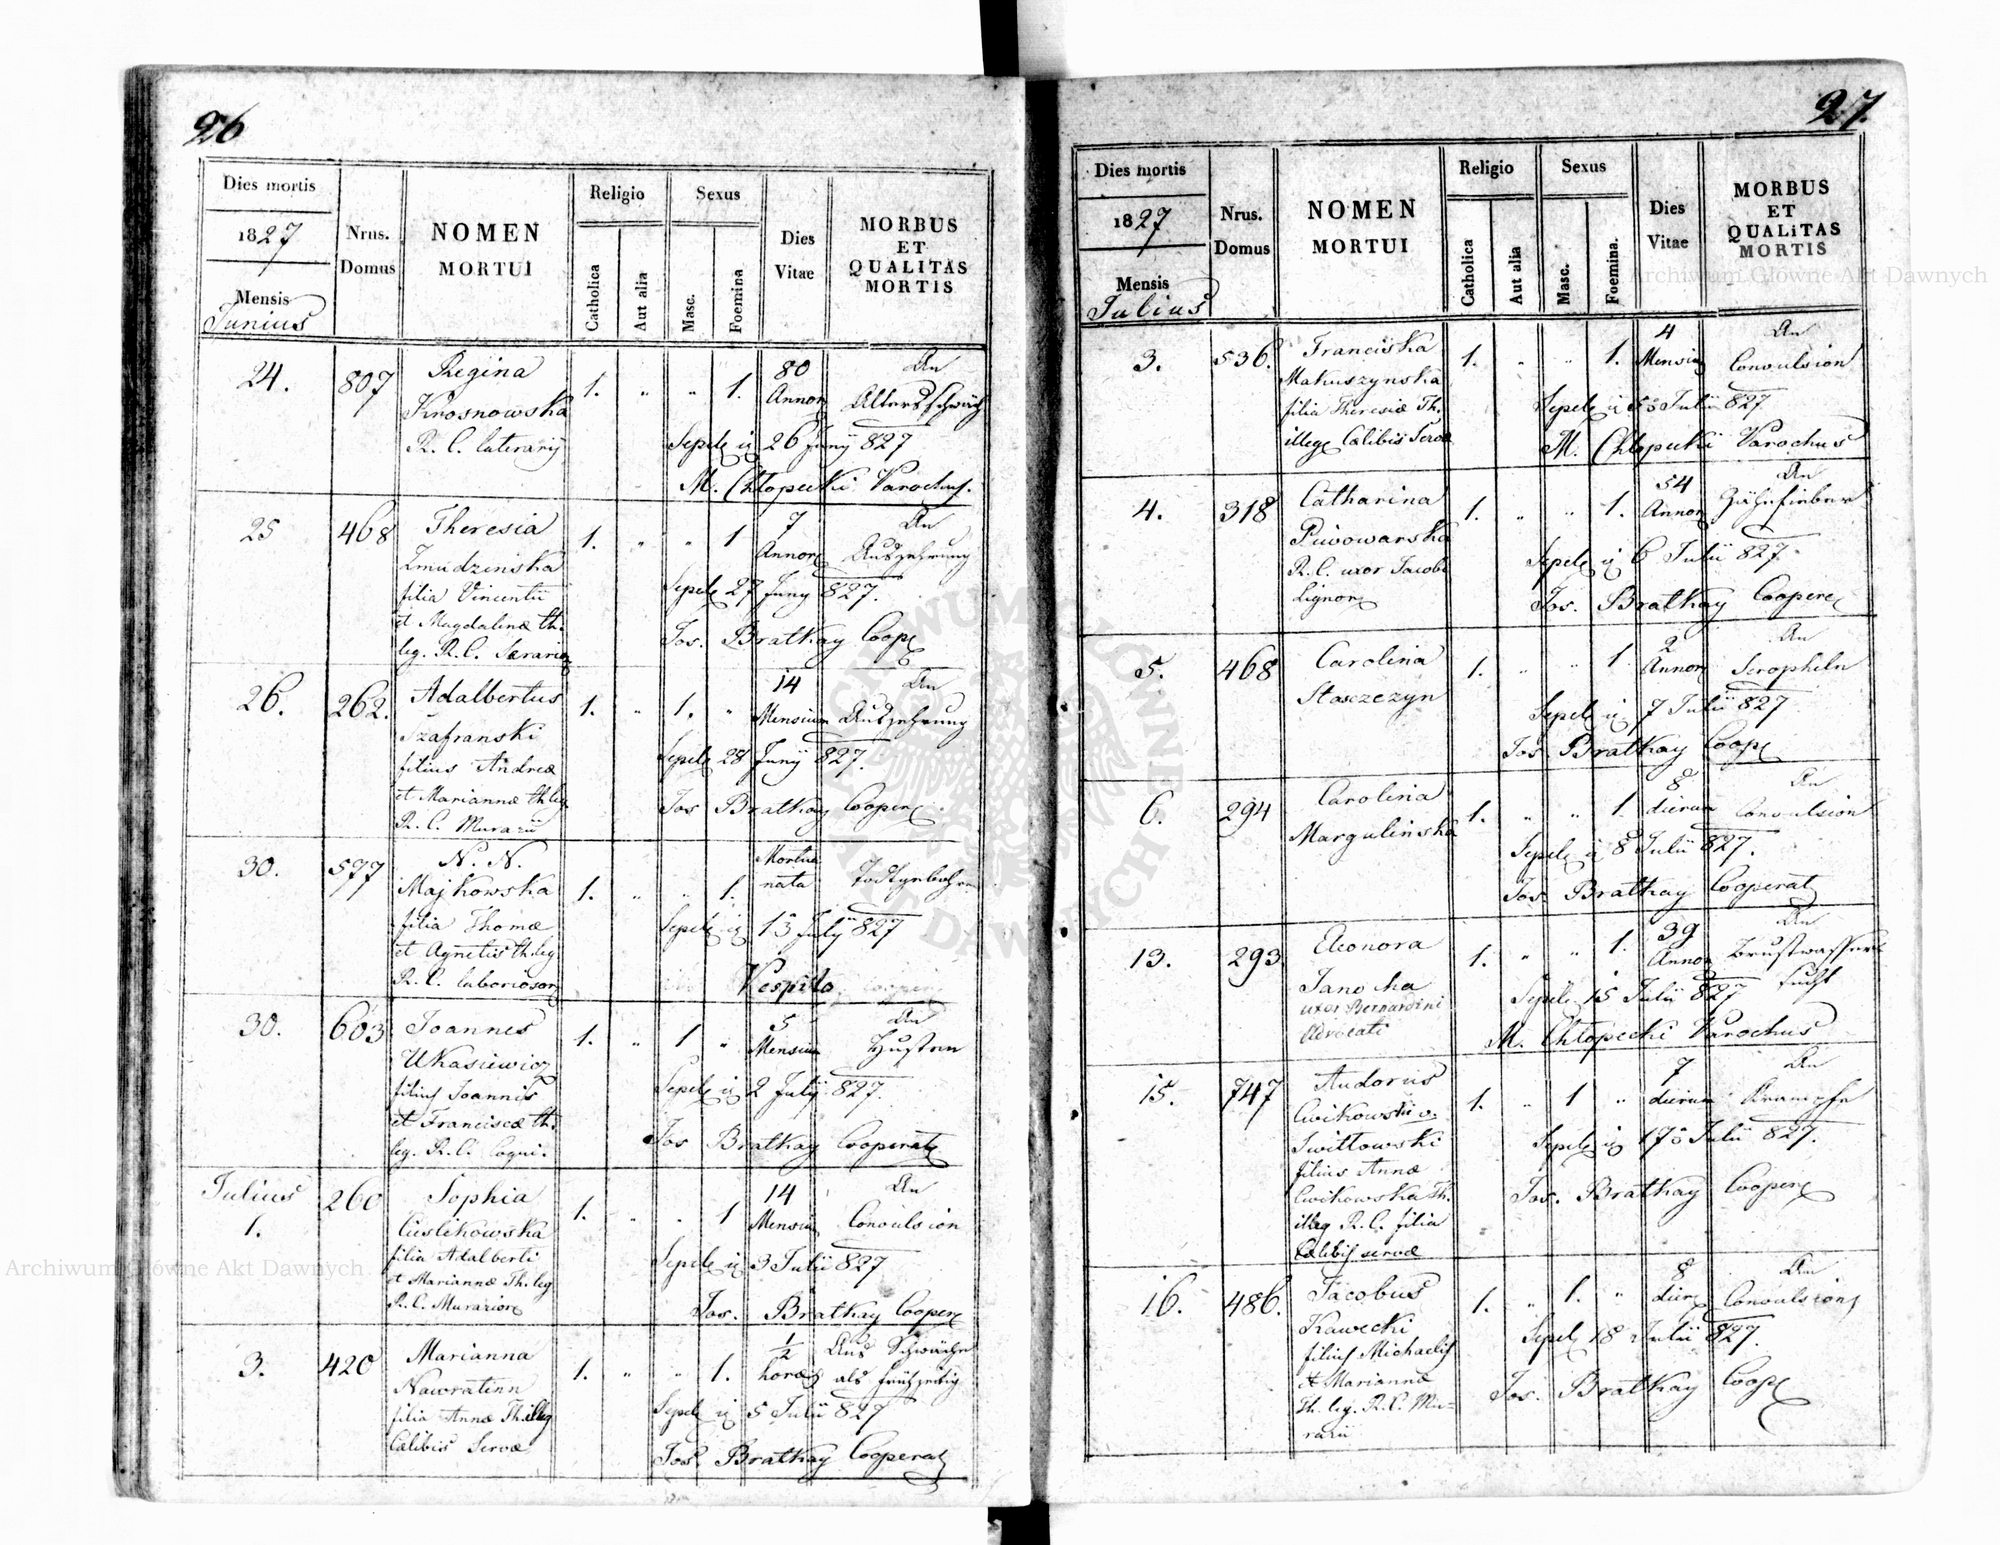 26
Dies mortis
1827
Mensis
Junius
Nrus.
Domus
NOMEN
MORTUI
Religio
Catholica
Aut alia
Sexus
Masc.
Foemina
Dies
Vitae
MORBUS
ET
QUALITAS
MORTIS
24.
807
Regina
Krosnowska
R. C.
1.
"
"
1.
80
Annor
An
Altersschwäche
26 Juny 827
M. Chlopecki Parochus.
25
468
Theresia
Zmudzinska
filia Vincentii
et Magdalenæ th.
leg. R. C.
1.
"
"
1
7
Annor
An
Auszehrung
27 Juny 827.
Jos. Bratkay Coop
26.
262.
Adalbertus
Szafranski
filius Andreæ
et Mariannæ th leg
R. C. Murarii
1.
"
1.
"
14
Mensium
An
Auszehrung
28 Juny 827.
Jos Bratkay Cooper
30.
577
N. N.
Majkowska
filia Thomæ
et Agnetis th leg
R. C.
1.
"
"
1.
Mortua
nata
Todtgebohren
July 827
30.
603
Joannes
Ukasiewicz
filius Joannis
et Franciscæ th.
leg. R. C. Coqui.
1.
"
1
"
5
Mensium
An
Husten
2 July 827.
Jos Bratkay Cooperat
Julius
1.
260
Sophia
Cieslikowska
filia Adalberti
et Mariannæ Th. leg
R. C.
1.
"
"
1
14
Mensium
An
Convulsion
3 Julii 827
Jos. Bratkay Cooper
3.
420
Marianna
Nawratinn
filia Annæ Th. illeg
Cælibis Servæ
1.
"
"
1.
1/2
horæ
Aus Schwäche
als frühzeitig
5 Julii 827
Jos. Bratkay Cooperat
27.
Dies mortis
1827
Mensis
Julius
Nrus.
Domus
NOMEN
MORTUI
Religio
Catholica
Aut alia
Sexus
Masc.
Foemina.
Dies
Vitae
MORBUS
ET
QUALITAS
MORTIS
3.
536.
Franciska
Makuszynska
filia Theresiæ Th.
illeg Cælibis Servæ
1.
"
"
1.
4
Mensium
An
Convulsion
Julii 827
M. Chlopecki Parochus
4.
318
Catharina
Piwowarska
R. C. uxor Jacobi
1.
"
"
1.
54
Annor
An
6 Julii 827.
Jos. Bratkay Cooper
5.
468
Carolina
Staszczyn
1.
"
"
1
2
Annor
An
Scropheln
7 Julii 827
Jos. Bratkay Coop
6.
294
Carolina
Margulinska
1.
"
"
1.
8
dierum
An
Convulsion
8 Julii 827.
Jos. Bratkay Cooperat
13.
293
Eleonora
Janocha
uxor Bernardini
Advocati
1.
"
"
1.
39
Annor
An
Brustwasser
sucht
15 Julii 827
M. Chlopecki Parochus
15.
747
Cwikowski v.
Switlowski
filius Annæ
Cwikowska th.
illeg R. C. filia
Cælibis servæ
1.
"
1
"
7
dierum
An
Krampfe
Julii 827.
Jos. Bratkay Cooper
16.
486.
Jacobus
Kawecki
filius Michaelis
et Mariannæ
th. leg. R. C. Mu=
rarii
1.
"
1.
"
8
dier
An
Convulsion
18 Julii 827.
Jos. Bratkay Coop
Archiwum Główne Akt Dawnych
Archiwum Główne Akt Dawnych
ARCHIWUM GŁÓWNE AKT DAWNYCH